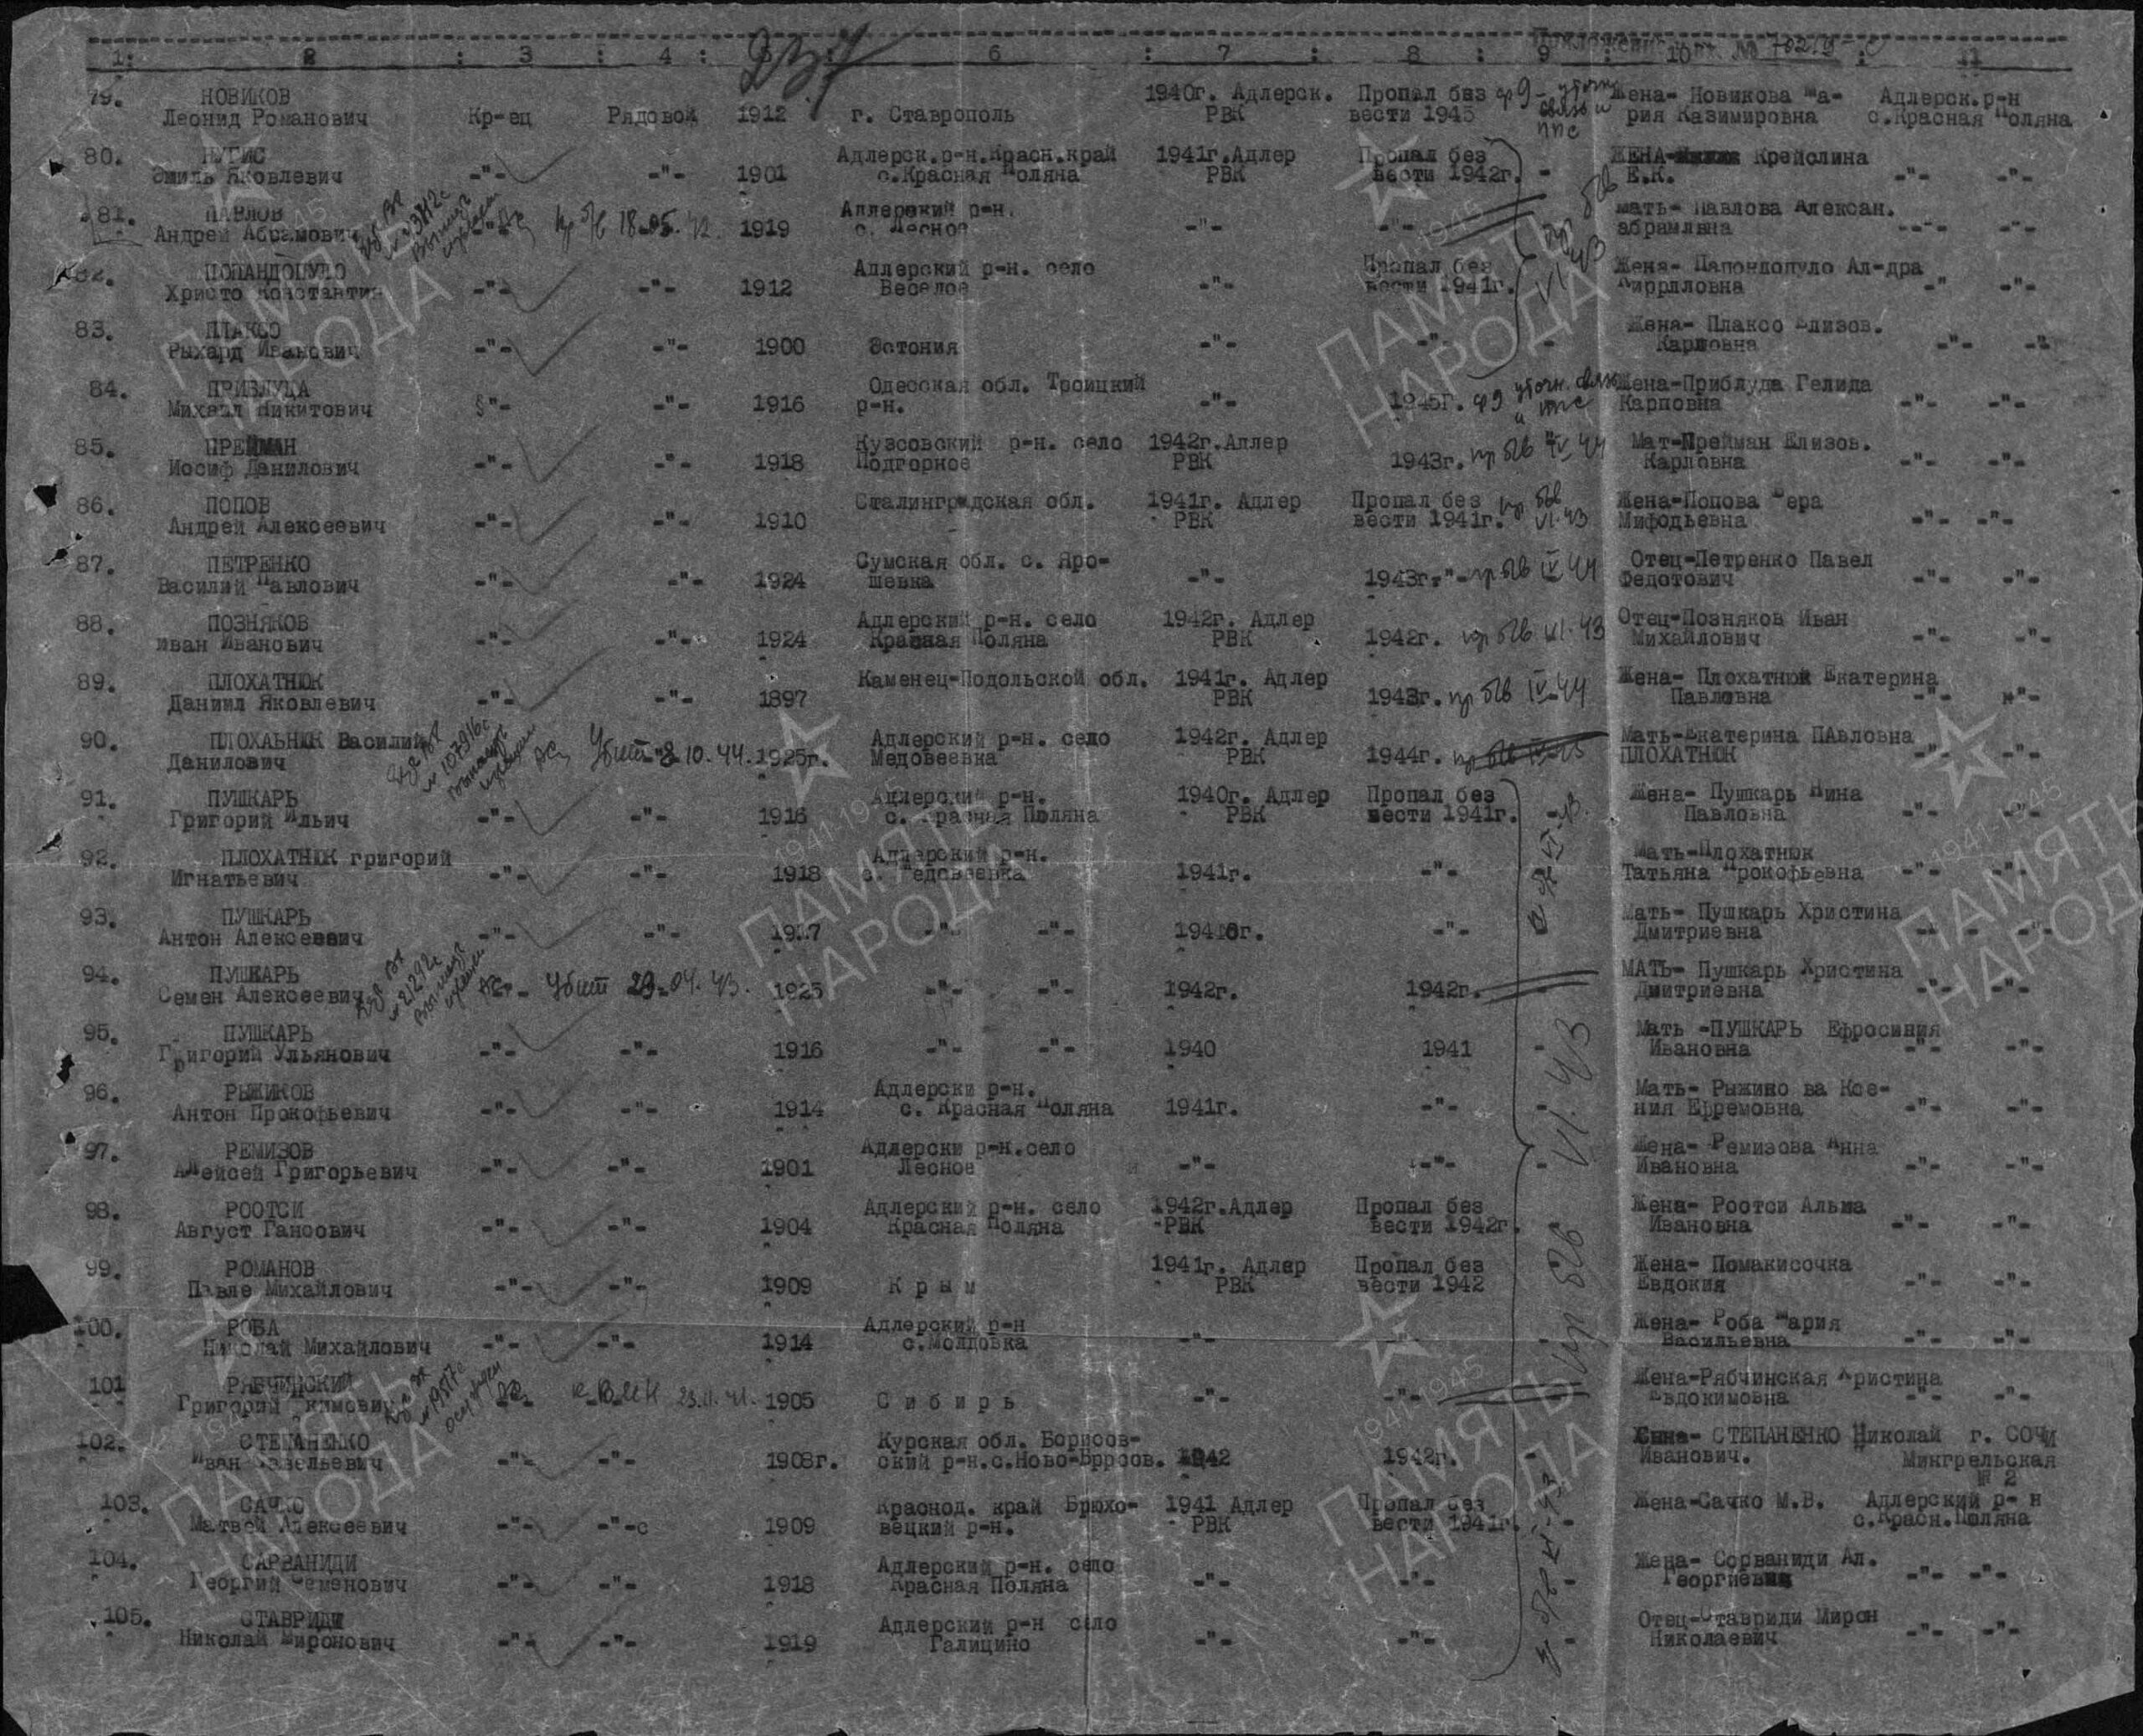 237
1: 2 : 3 : 4 : 5 : 6 : 7 : 8 : 9 : 10 : 11
79. НОВИКОВ 1940г. Адлерск. Пропал без Жена- Новикова Ма- Адлерск.р-н
Леонид Романович Кр-ец Рядовой 1912 г. Ставрополь РВК вести 1945 рия Казимировна с.Красная Поляна
80. НУГИС Адлерск.р-н.Красн.край 1941г.Адлер Пропал без ЖЕНА- Крейслина
Эмиль Яковлевич -"- -"- 1901 с.Красная Поляна РВК вести 1942г. - Е.К. -"- -"-
81. ПАВЛОВ Адлерский р-н. Мать- Павлова Алексан.
Андрей Абрамович -"- 18.05.42. 1919 с. Лесное -"- -"- абрамлвна -"- -"-
82. ПОПАНДОПУЛО Адлерский р-н. село Пропал без Жена- Папондопуло Ал-дра
Христо Константин -"- -"- 1912 Веселое -"- вести 1941г. Киррлловна -" -"-
83. ПЛАКСО Жена- Плаксо Елизов.
Рыхард Иванович -"- -"- 1900 Эстония -"- -"- - Карловна -"- -"
84. ПРИБЛУДА Одесская обл. Троицкий Жена-Приблуда Гелида
Михаил Никитович §"- -"- 1916 р-н. -"- 1945г. Карповна -"- -"-
85. ПРЕЙМАН Кузсовский р-н. село 1942г.Адлер Мат-Прейман Елизов.
Иосиф Данилович -"- -"- 1918 Подгорное РВК 1943г. пр бв IV 44 Карловна -"- -"-
86. ПОПОВ Сталинградская обл. 1941г. Адлер Пропал без пр бв Жена-Попова Вера
Андрей Алексеевич -"- -"- 1910 РВК вести 1941г. VI.43 Мифодьевна -"- -"-
87. ПЕТРЕНКО Сумская обл. с. Яро- Отец-Петренко Павел
Василий Павлович -"- -"- 1924 шевка -"- 1943г."- пр бв IV 44 Федотович -"- -"-
88. ПОЗНЯКОВ Адлерский р-н. село 1942г. Адлер Отец-Позняков Иван
Иван Иванович -"- -"- 1924 Красная Поляна РВК 1942г. пр бв VI.43 Михайлович -"- -"-
89. ПЛОХАТНЮК Каменец-Подольской обл. 1941г. Адлер Жена- Плохатнюй Екатерина
Даниил Яковлевич -"- -"- 1897 РВК 1943г. пр бв IV-44 Павловна -"- -"-
90. ПЛОХАЬНЮК Василий Адлерский р-н. село 1942г. Адлер Мать-Екатерина ПАвловна
Данилович Убит 8.10.44. 1925г. Медовеевка РВК 1944г. ПЛОХАТНЮК -"- -"-
91. ПУШКАРЬ Адлерский р-н. 1940г. Адлер Пропал без Жена- Пушкарь Нина
Григорий Ильич -"- -"- 1916 с. Красная Поляна РВК вести 1941г. - Павловна -"- -"-
92. ПЛОХАТНЮК григорий Адлерский р-н. Мать-Плохатнюк
Игнатьевич -"- -"- 1918 с. Медовеевка 1941г. -"- Татьяна Прокофьевна -"- -"-
93. ПУШКАРЬ Мать- Пушкарь Христина
Антон Алексеевич -"- -"- 1917 -"- -"- 1940г. -"- - Дмитриевна -"- -"-
94. ПУШКАРЬ МАТЬ- Пушкарь Христина
Семен Алексеевич Убит 23.04.43. 1925 -"- -"- 1942г. 1942г. - Дмитриевна -"- -"-
95. ПУШКАРЬ Мать -ПУШКАРЬ Ефросиния
Григорий Ульянович -"- -"- 1916 -"- -"- 1940 1941 - Ивановна -"- -"-
96. РЫЖИКОВ Адлерски р-н. Мать- Рыжико ва Ксе-
Антон Прокофьевич -"- -"- 1914 с. Красная Поляна 1941г. -"- - ния Ефремовна -"- -"-
97. РЕМИЗОВ Адлерски р-н.село Жена- Ремизова Анна
Алейсей Григорьевич -"- -"- 1901 Лесное -"- -"- - Ивановна -"- -"-
98. РООТСИ Адлерский р-н. село 1942г.Адлер Пропал без Жена- Роотси Альма
Август Гансович -"- -"- 1904 Красная Поляна -РВК вести 1942г. Ивановна -"- -"-
99. РОМАНОВ 1941г. Адлер Пропал без Жена- Помакисочка
Павле Михайлович -"- -"- 1909 К р ы м РВК вести 1942 Евдокия -"- -"-
100. РОБА Адлерский р-н Жена- Роба Мария
Николай Михайлович -"- -"- 1914 с.Молдовка -"- -"- - Васильевна -"- -"-
101 РЯБЧИНСКИЙ Жена-Рябчинская Христина
Григорий Екимович -"- 23.11.41. 1905 С и б и р ь -"- -"- Евдокимовна -"- -"-
102. СТЕПАНЕНКО Курская обл. Борисов- Сына- СТЕПАНЕНКО Николай г. СОЧИ
Иван Савельевич -"- -"- 1908г. ский р-н.с.Ново-Бррсов. 1942 1942г. - Иванович. Мингрельская
№ 2
103. САЧКО Краснод. край Брюхо- 1941 Адлер Пропал без Жена-Сачко М.В. Адлерский р- н
Матвей Алексеевич -"- -"-с 1909 вецкий р-н. РВК вести 1941г. - с.Красн.Поляна
104. САРВАНИДИ Адлерский р-н. село Жена- Сорваниди Ал.
Георгий Семенович -"- -"- 1918 Красная Поляна -"- -"- - Георгиевна -"- -"-
105. СТАВРИДИ Адлерский р-н село Отец-Ставриди Мирон
Николай Миронович -"- -"- 1919 Галицино -"- -"- - Николаевич -"- -"-
пр бв VI.43
1941-1945
ПАМЯТЬ
НАРОДА